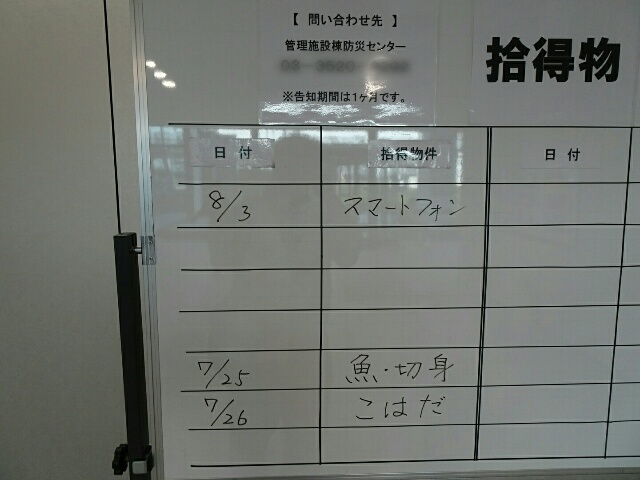 【 問い合わせ先 】
管理施設棟防災センター
※告知期間は1ヶ月です。
拾得物
日 付 拾得物件 日 付
8/3 スマートフォン
7/25 魚・切身
7/26 こはだ